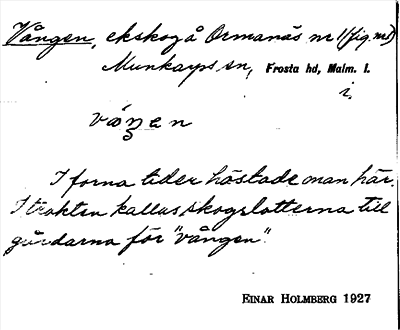 Vången, ekskog å Ormanäs nr 1 (fig. nr 1)
Munkarps sn, Frosta hd, Malm. l.
i,
våŋen
I forna tider höstade man här.
I trakten kallas skogslotterna till
gårdarna för "vången".
EINAR HOLMBERG 1927